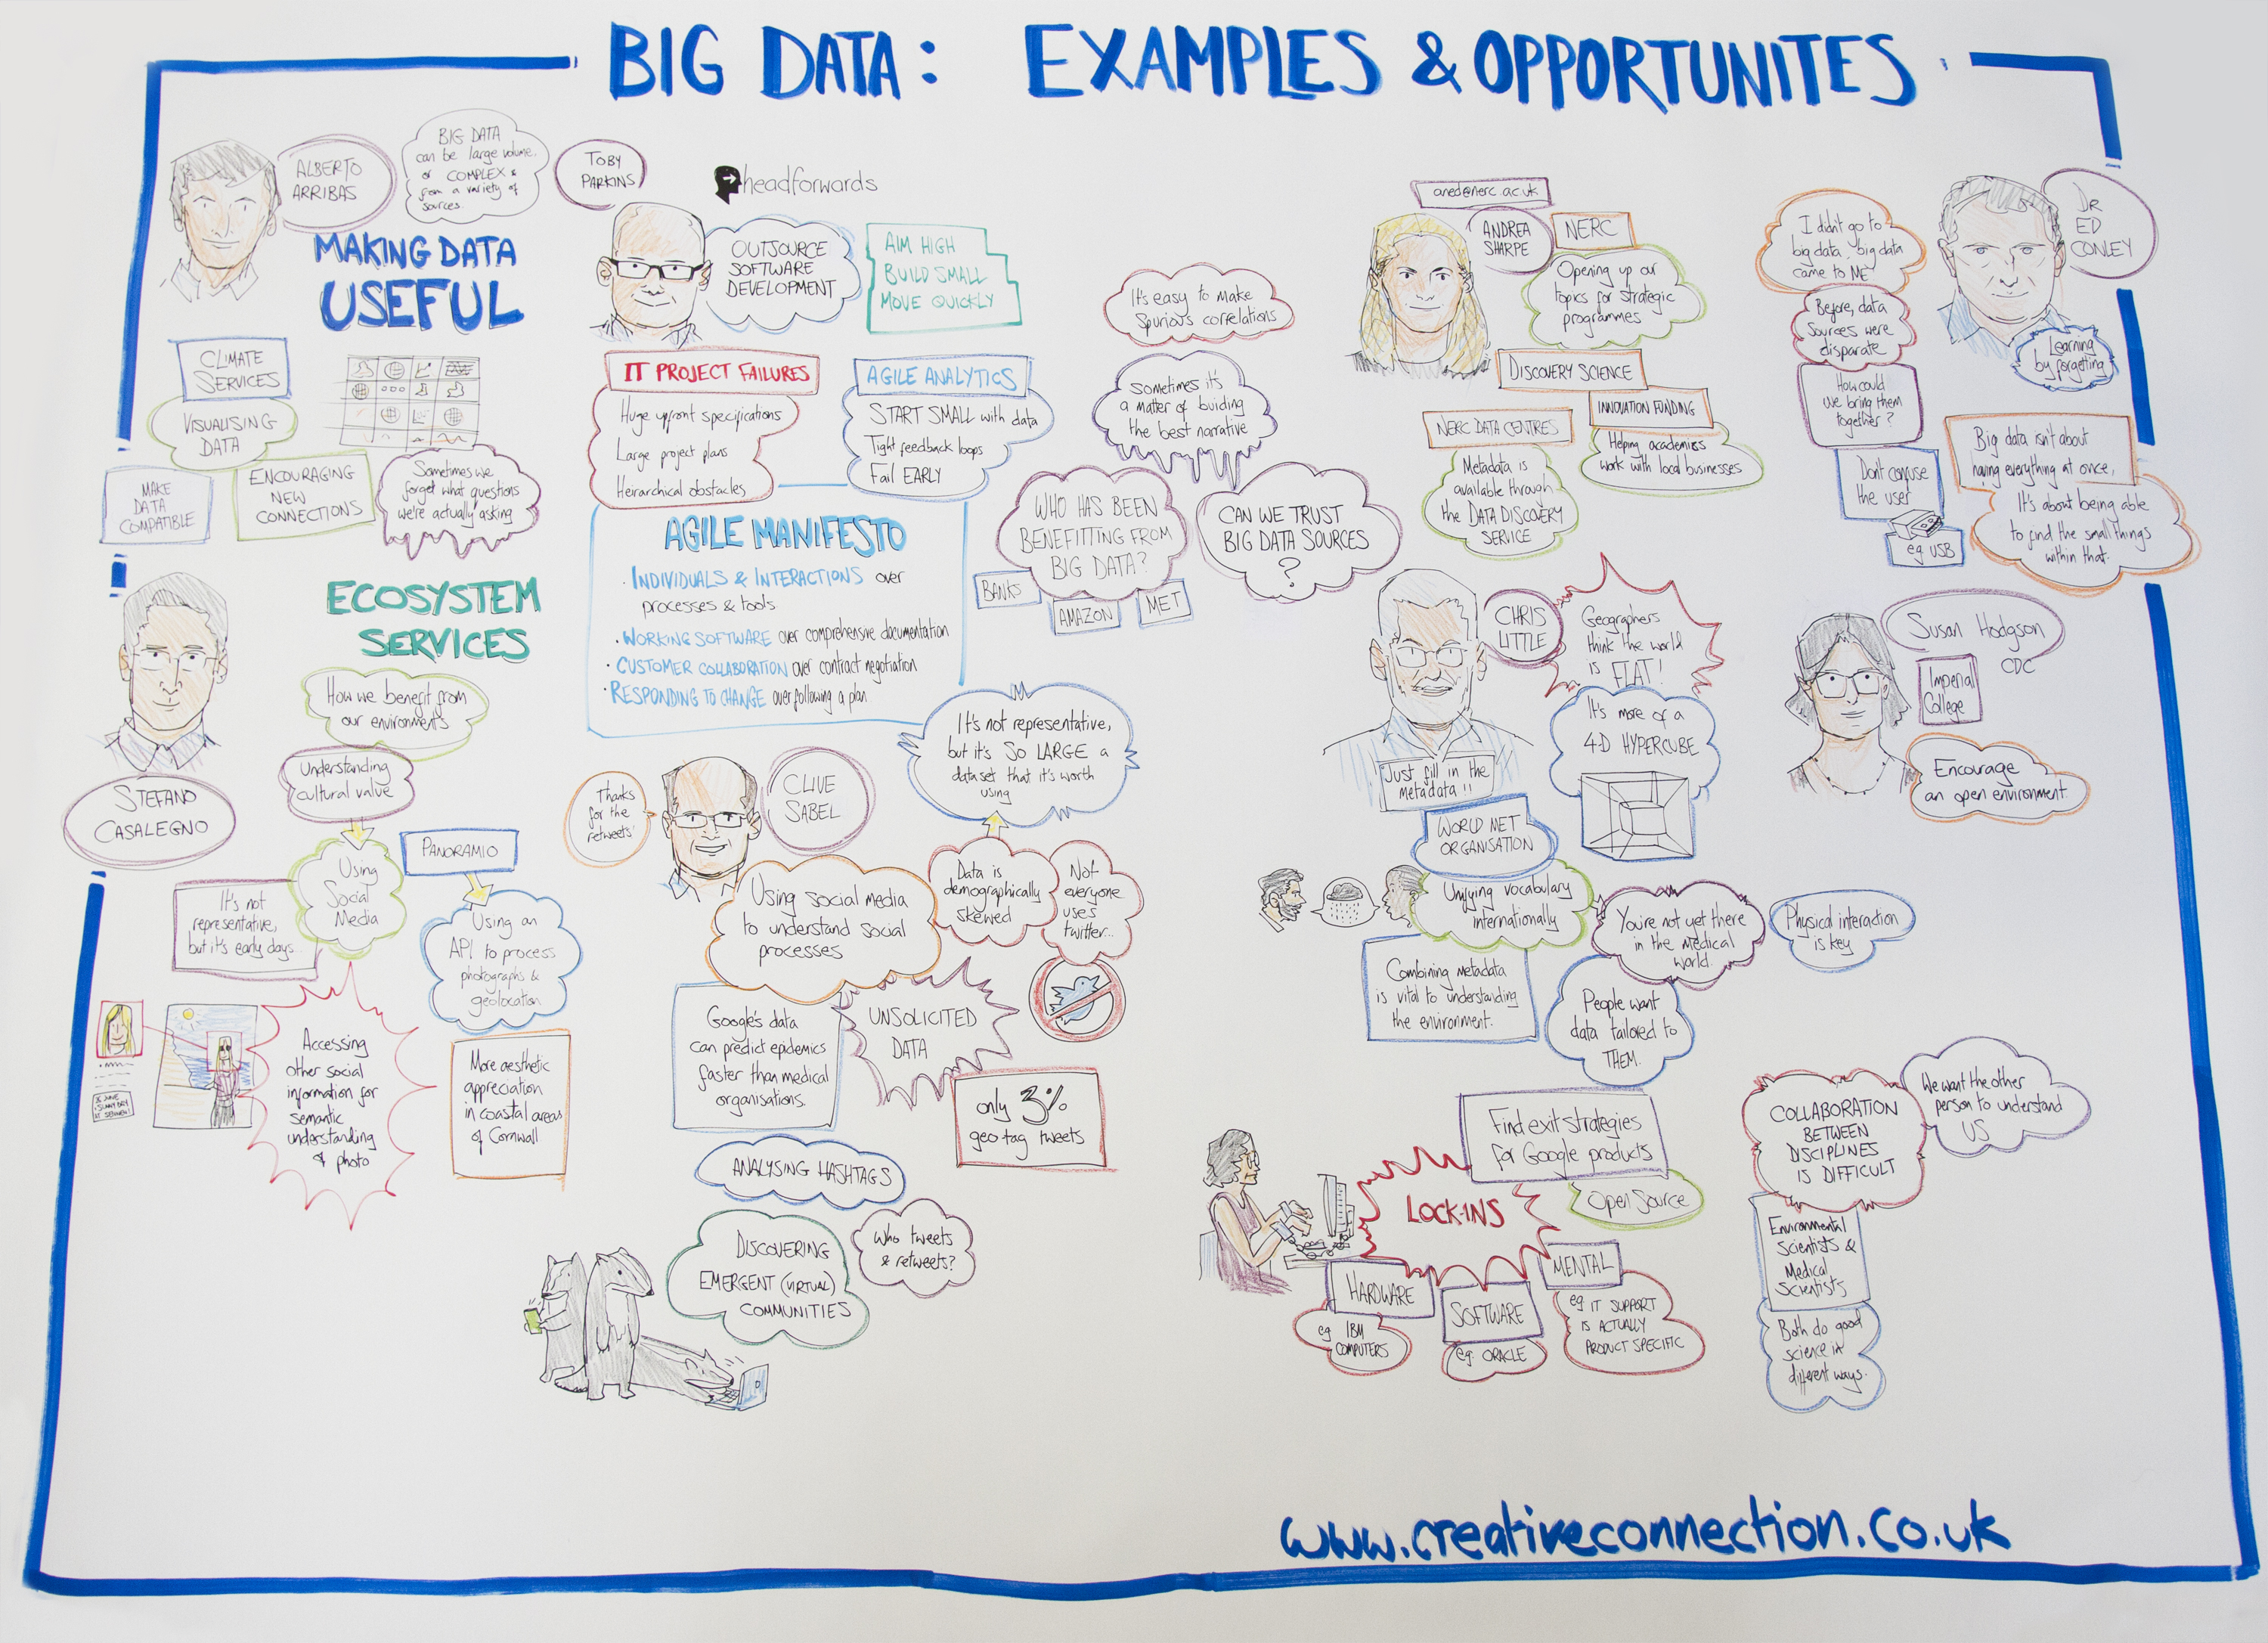 BIG DATA: EXAMPLES & OPPORTUNITES
ALBERTO
ARRIBAS
BIG DATA
can be large volume.
or COMPLEX &
from a variety of
sources.
MAKING DATA
USEFUL
CLIMATE
SERVICES
VISUALISING
DATA
MAKE
DATA
COMPATIBLE
ENCOURAGING
NEW
CONNECTIONS
Sometimes we
forget what questions
we're actually asking
ECOSYSTEM
SERVICES
How we benefit from
our environments
Understanding
cultural value
STEFANO
CASALEGNO
Using
Social
Media
PANORAMIO
It's not
representative,
but it's early days...
Using an
API to process
photographs &
geolocation
Accessing
other social
information for
semantic
understanding
of photo
More aesthetic
appreciation
in coastal areas
of Cornwall
TOBY
PARKINS
headforwards
OUTSOURCE
SOFTWARE
DEVELOPMENT
AIM HIGH
BUILD SMALL
MOVE QUICKLY
IT PROJECT FAILURES
Huge upfront specifications
Large project plans
Heirarchical obstacles
AGILE ANALYTICS
START SMALL with data
Tight feedback loops
Fail EARLY
AGILE MANIFESTO
· INDIVIDUALS & INTERACTIONS over
processes & tools
· WORKING SOFTWARE over comprehensive documentation
· CUSTOMER COLLABORATION over contract negotiation
· RESPONDING TO CHANGE over following a plan
Thanks
for the
retweets'
CLIVE
SABEL
It's not representative,
but it's SO LARGE a
data set that it's worth
using
Using social media
to understand social
processes
Data is
demographically
skewed
Not
everyone
uses
twitter...
Google's data
can predict epidemics
faster than medical
organisations.
UNSOLICITED
DATA
only 3%
geo tag tweets
ANALYSING HASHTAGS
DISCOVERING
EMERGENT (VIRTUAL)
COMMUNITIES
Who tweets
& retweets?
It's easy to make
Spurious correlations
Sometimes it's
a matter of buiding
the best narrative
WHO HAS BEEN
BENEFITTING FROM
BIG DATA?
BANKS
AMAZON
MET
CAN WE TRUST
BIG DATA SOURCES
?
aned@nerc.ac.uk
ANDREA
SHARPE
NERC
Opening up our
topics for strategic
programmes
DISCOVERY SCIENCE
INNOVATION FUNDING
NERC DATA CENTRES
Helping academics
work with local businesses
Metadata is
available through
the DATA DISCOVERY
SERVICE
CHRIS
LITTLE
Geographers
think the world
is FLAT!
It's more of a
4-D HYPERCUBE
Just fill in the
metadata!!
WORLD MET
ORGANISATION
Unifying vocabulary
internationally
You're not yet there
in the medical
world.
Physical interaction
is key
Combining metadata
is vital to understanding
the environment.
People want
data tailored to
THEM.
I didn't go to
big data, big data
came to ME
DR
ED
CONLEY
Before, data
sources were
disparate
Learning
by forgetting
How could
we bring them
together?
Don't confuse
the user
eg USB
Big data isn't about
having everything at once,
It's about being able
to find the small things
within that.
Susan Hodgson
CDC
Imperial
College
Encourage
an open environment.
Find exit strategies
for Google products
LOCK-INS
Open Source
HARDWARE
eg IBM
COMPUTERS
SOFTWARE
eg. ORACLE
MENTAL
eg IT SUPPORT
IS ACTUALLY
PRODUCT SPECIFIC
COLLABORATION
BETWEEN
DISCIPLINES
IS DIFFICULT
We want the other
person to understand
US
Environmental
Scientists &
Medical
Scientists
Both do good
science in
different ways.
www.creativeconnection.co.uk